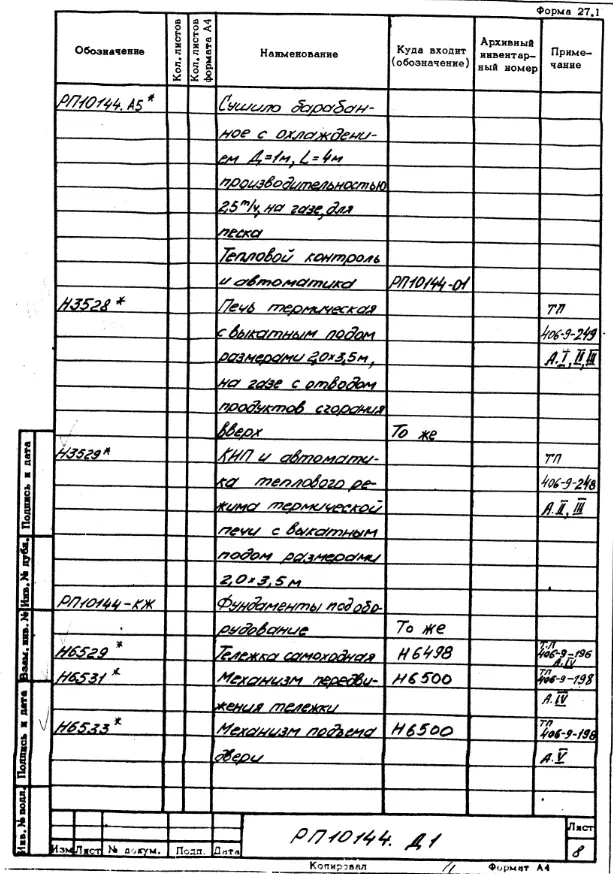 Форма 27.1
Обозначение
Кол. листов
Кол. листов формата А4
Наименование
Куда входит (обозначение)
Архивный инвентар-ный номер
Приме-чание
РП10144.А5* Сушило барабан-
ное с охлаждени-
ем Д=1м, L=4м
производительностью
2,5 т/ч, на газе, для
песка
Тепловой контроль
и автоматика РП10144-01
Н3528* Печь термическая ТП
с выкатным подом 406-9-249
размерами 2,0×3,5м, А.I, II, III
на газе с отводом
продуктов сгорания
вверх То же
Н3529* КИП и автомати- ТП
ка теплового ре- 406-9-248
жима термической А.II, III
печи с выкатным
подом размерами
2,0×3,5м
РП10144-КЖ Фундаменты под обо-
рудование То же
Н6529* Тележка самоходная Н6498 ТП 406-9-196 А.IV
Н6531* Механизм передви- Н6500 ТП 406-9-198
жения тележки А.IV
Н6533* Механизм подъема Н6500 ТП 406-9-198
двери А.V
Инв. № подл.
Подпись и дата
Взам. инв. №
Инв. № дубл.
Подпись и дата
РП10144. Д1
Лист
8
Изм Лист № докум. Подп. Дата
Копировал
Формат А4